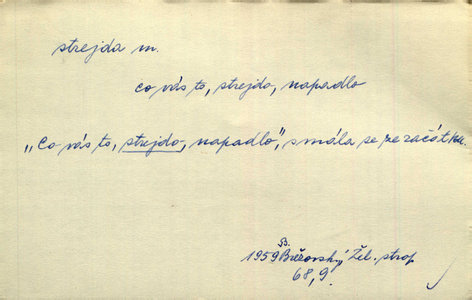 strejda m.
co vás to, strejdo, napadlo
„Co vás to, strejdo, napadlo", smála se ze začátku.
B.
1959 Březovský, Žel. strop
68,9